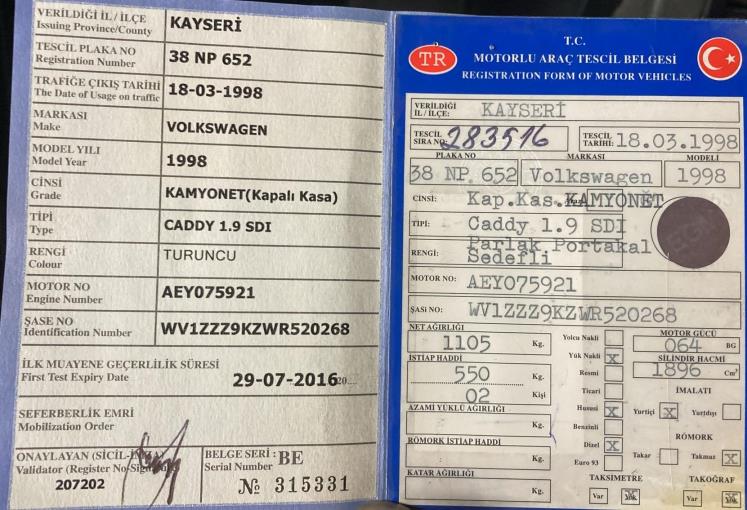 VERİLDİĞİ İL / İLÇE
Issuing Province/County
KAYSERİ
TESCİL PLAKA NO
Registration Number
38 NP 652
TRAFİĞE ÇIKIŞ TARİHİ
The Date of Usage on traffic
18-03-1998
MARKASI
Make
VOLKSWAGEN
MODEL YILI
Model Year
1998
CİNSİ
Grade
KAMYONET(Kapalı Kasa)
TİPİ
Type
CADDY 1.9 SDI
RENGİ
Colour
TURUNCU
MOTOR NO
Engine Number
AEY075921
ŞASE NO
Identification Number
WV1ZZZ9KZWR520268
İLK MUAYENE GEÇERLİLİK SÜRESİ
First Test Expiry Date
29-07-2016
SEFERBERLİK EMRİ
Mobilization Order
ONAYLAYAN (SİCİL-İMZA)
Validator (Register No-Signature)
207202
BELGE SERİ : BE
Serial Number
№ 315331
TR
T.C.
MOTORLU ARAÇ TESCİL BELGESİ
REGISTRATION FORM OF MOTOR VEHICLES
VERİLDİĞİ
İL / İLÇE: KAYSERİ
TESCİL
SIRA NO: 283516
TESCİL
TARİHİ: 18.03.1998
PLAKA NO MARKASI MODELİ
38 NP 652 Volkswagen 1998
CİNSİ: Kap.Kas.KAMYONET
TİPİ: Caddy 1.9 SDI
RENGİ: Parlak Portakal
Sedefli
MOTOR NO: AEY075921
ŞASİ NO: WV1ZZZ9KZWR520268
NET AĞIRLIĞI
1105 Kg.
İSTİAP HADDİ
550 Kg.
02 Kişi
AZAMİ YÜKLÜ AĞIRLIĞI
Kg.
RÖMORK İSTİAP HADDİ
Kg.
KATAR AĞIRLIĞI
Kg.
Yolcu Nakli
Yük Nakli X
Resmi
Ticari
Hususi X
Benzinli
Dizel X
Euro 93
MOTOR GÜCÜ
064 BG
SİLİNDİR HACMİ
1896 Cm³
İMALATI
Yurtiçi X Yurtdışı
RÖMORK
Takar Takmaz X
TAKSİMETRE TAKOĞRAF
Var Yok Var Yok